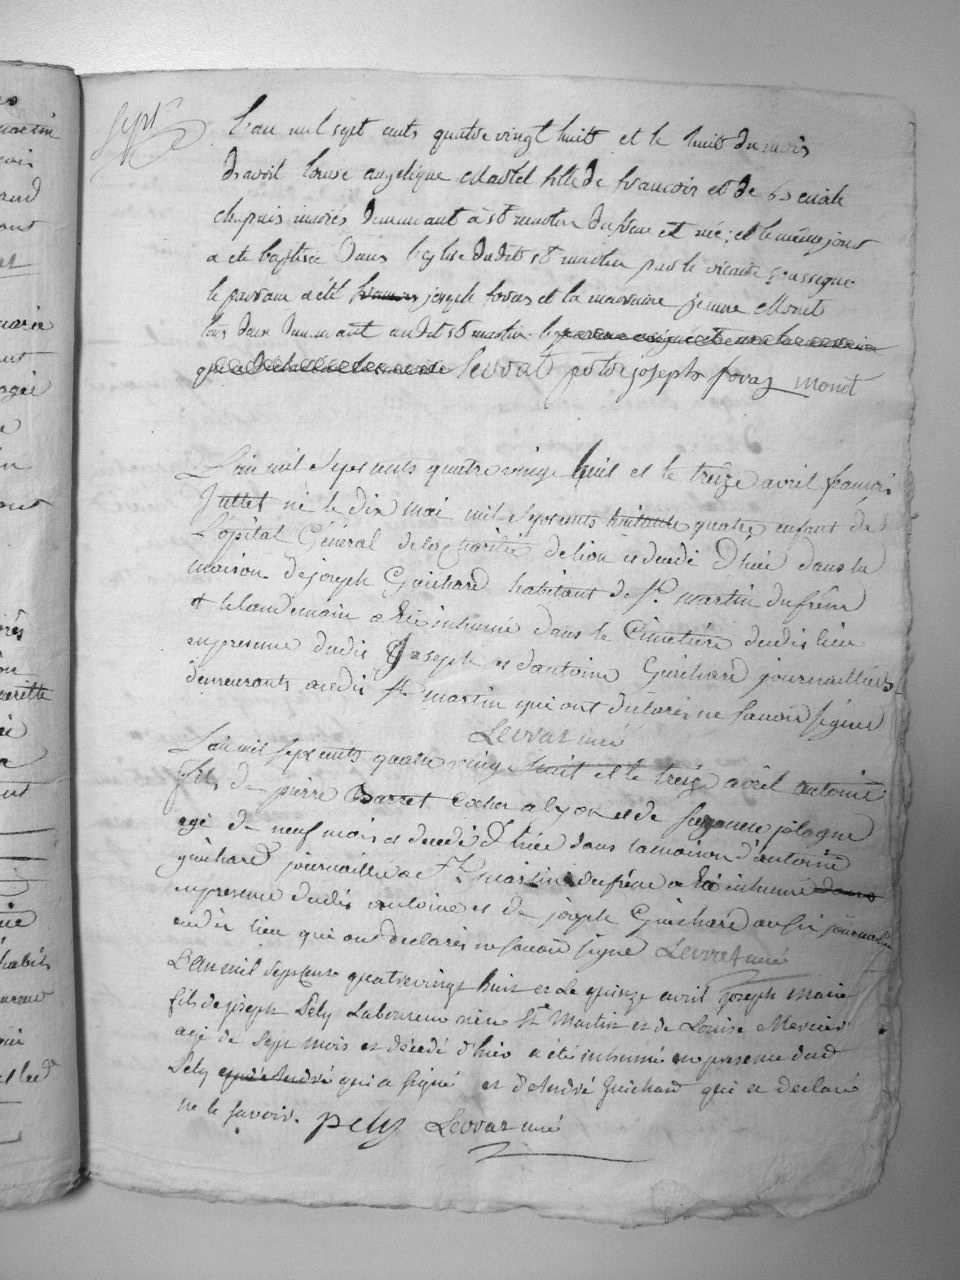 sept
L'an mil sept cents quatre vingt huitt et le huit du mois
davril louise angelique Martel fille de francois et de
chapuis mariés demeurant à st martin du frene est née, et le même jour
a eté baptisée dans l'eglise dudit st martin par le vicaire soussigné
le parrain a été francois joseph fovas et la marraine jeanne Monet
tous deux demeurant audit st martin
levrat joseph fovaz monet
L'an mil sept cents quatre vingt huit et le treize avril francois
Juttet né le dix mai mil sept cents huitante quatre enfant de
L'ôpital Général de la Charité de lion et decedé D'hier dans la
maison de joseph Guichard habitant de St. martin du frêne
et le landemain a été inhumé dans le Cimetière dudit lieu
en presence dudit Joseph et d'antoine Guichard journailliers
demeurants audit St martin qui ont déclarés ne savoir signer
Levrat curé
L'an mil sept cents quatre vingt huit et le treize avril antoine
fils de pierre Barret cocher a lyon et de suzanne pilogue
agé de neuf mois et decedé D'hier dans la maison d'antoine
guichard journaillier a St. martin du frêne a été inhumé dans
en presence dudit antoine et de joseph Guichard aussi journaillier
audit lieu qui ont declarés ne savoir signer Levrat curé
L'an mil sept cent quatre vingt huit et Le quinze avril joseph Marie
fils de joseph Pely Laboureur rière St Martin et de Louise Mercier
agé de Sept mois et décédé d'hier a été inhumé en presence dud
Pely qui a signé et d'André Guichard qui a declaré
ne le savoir. pely Levrat curé